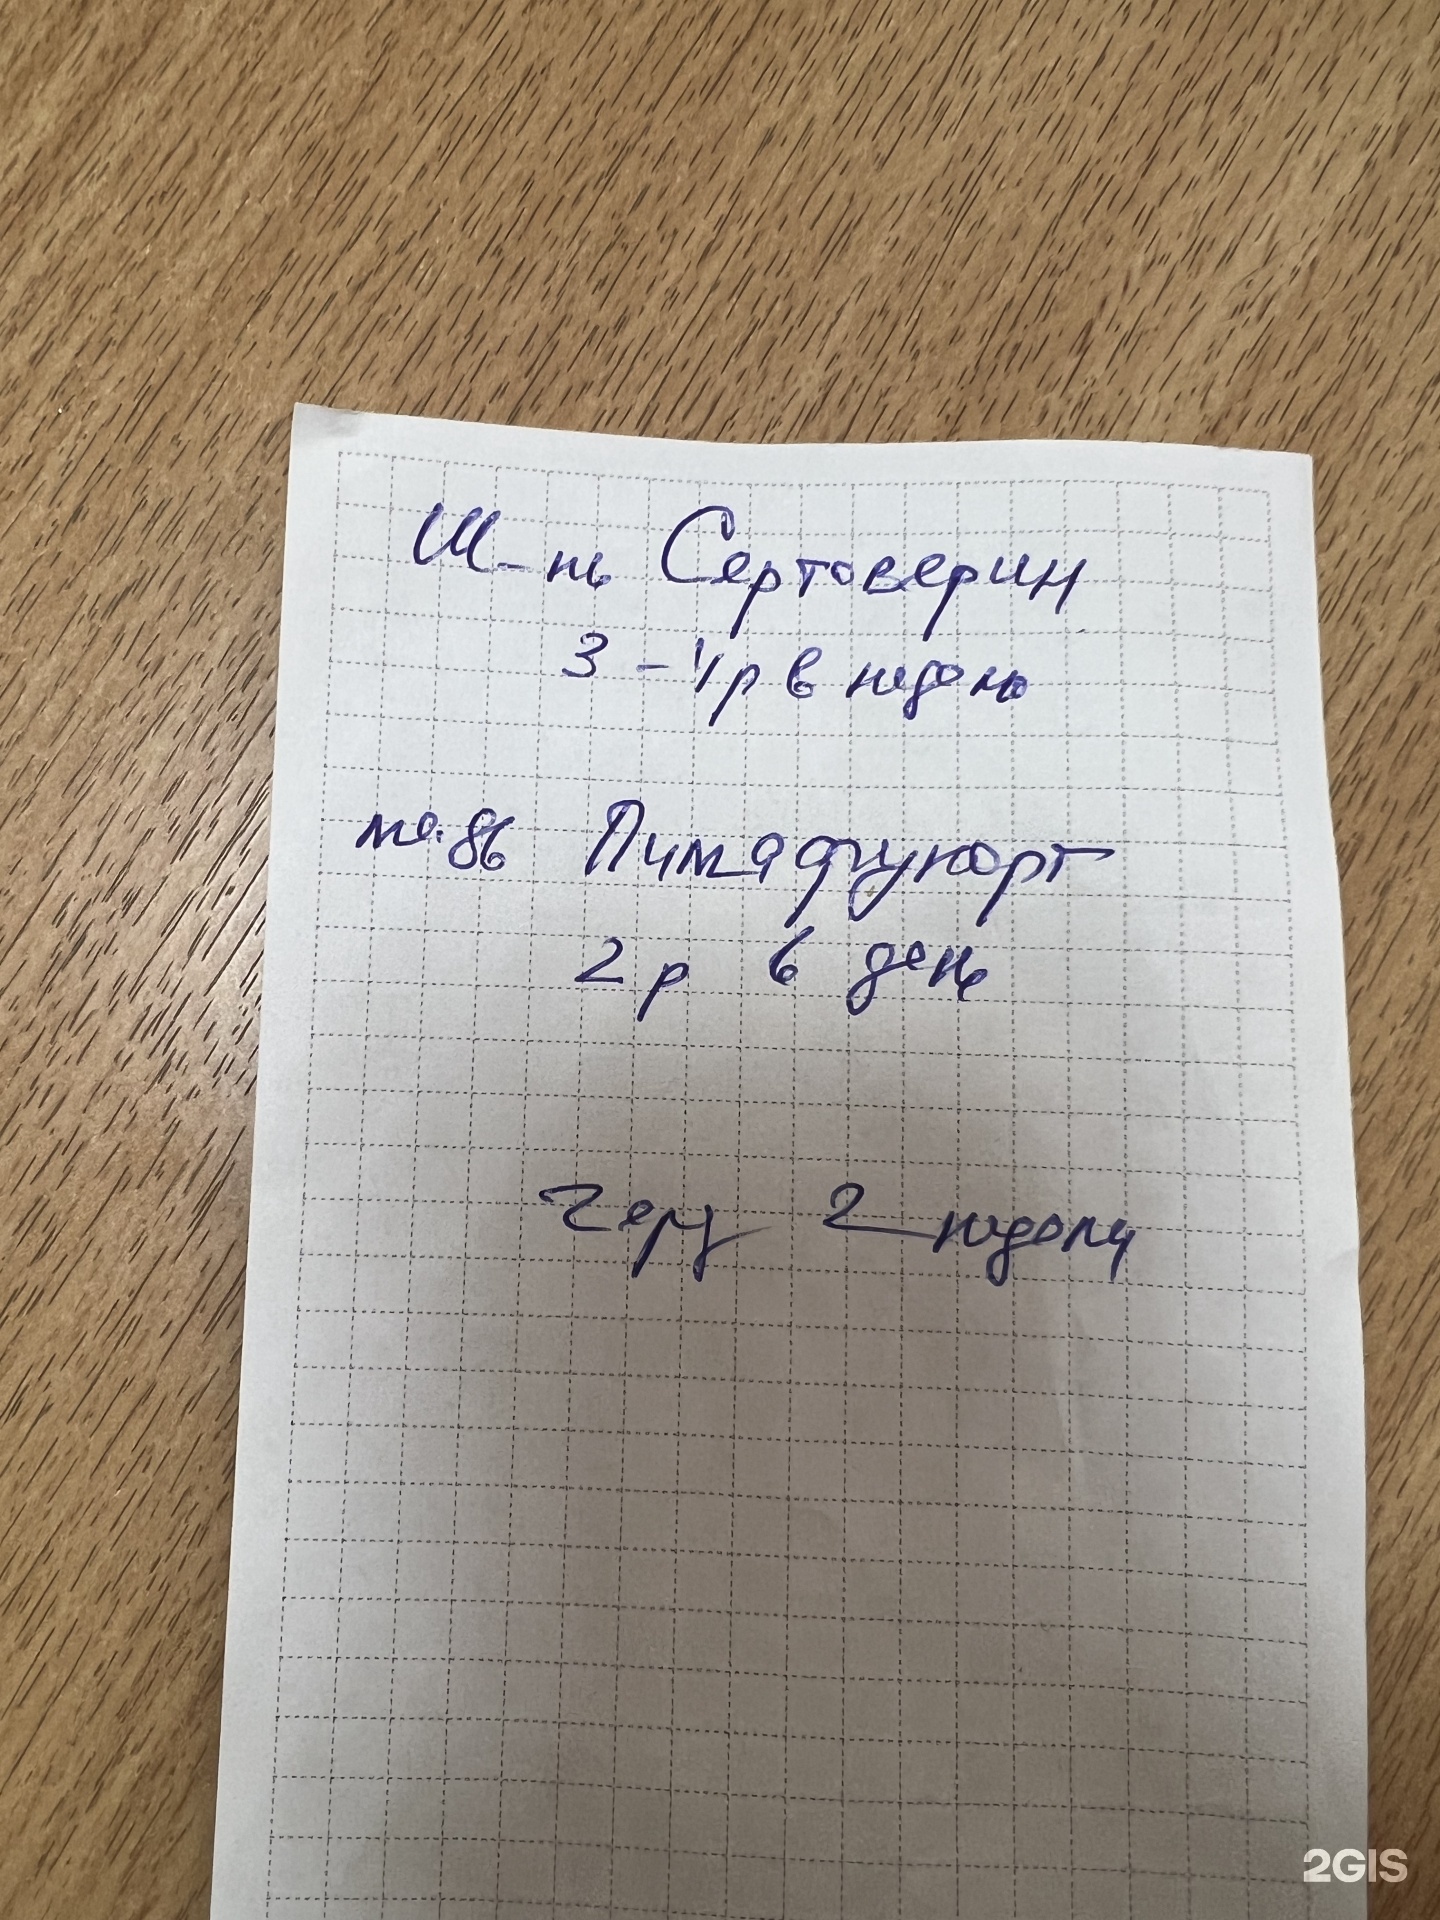 Ш-нь Сертоверин
3-4р в неделю
мазь Пимафукорт
2р в день
Через 2 недели
2GIS